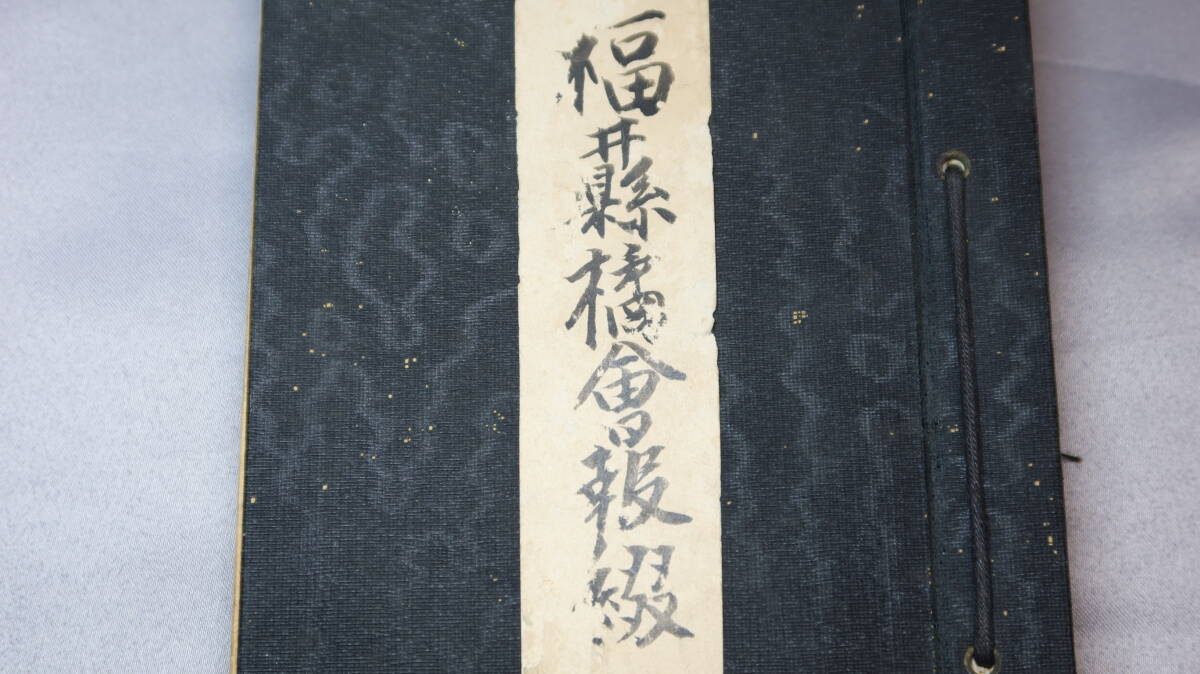 福井縣橘會報綴